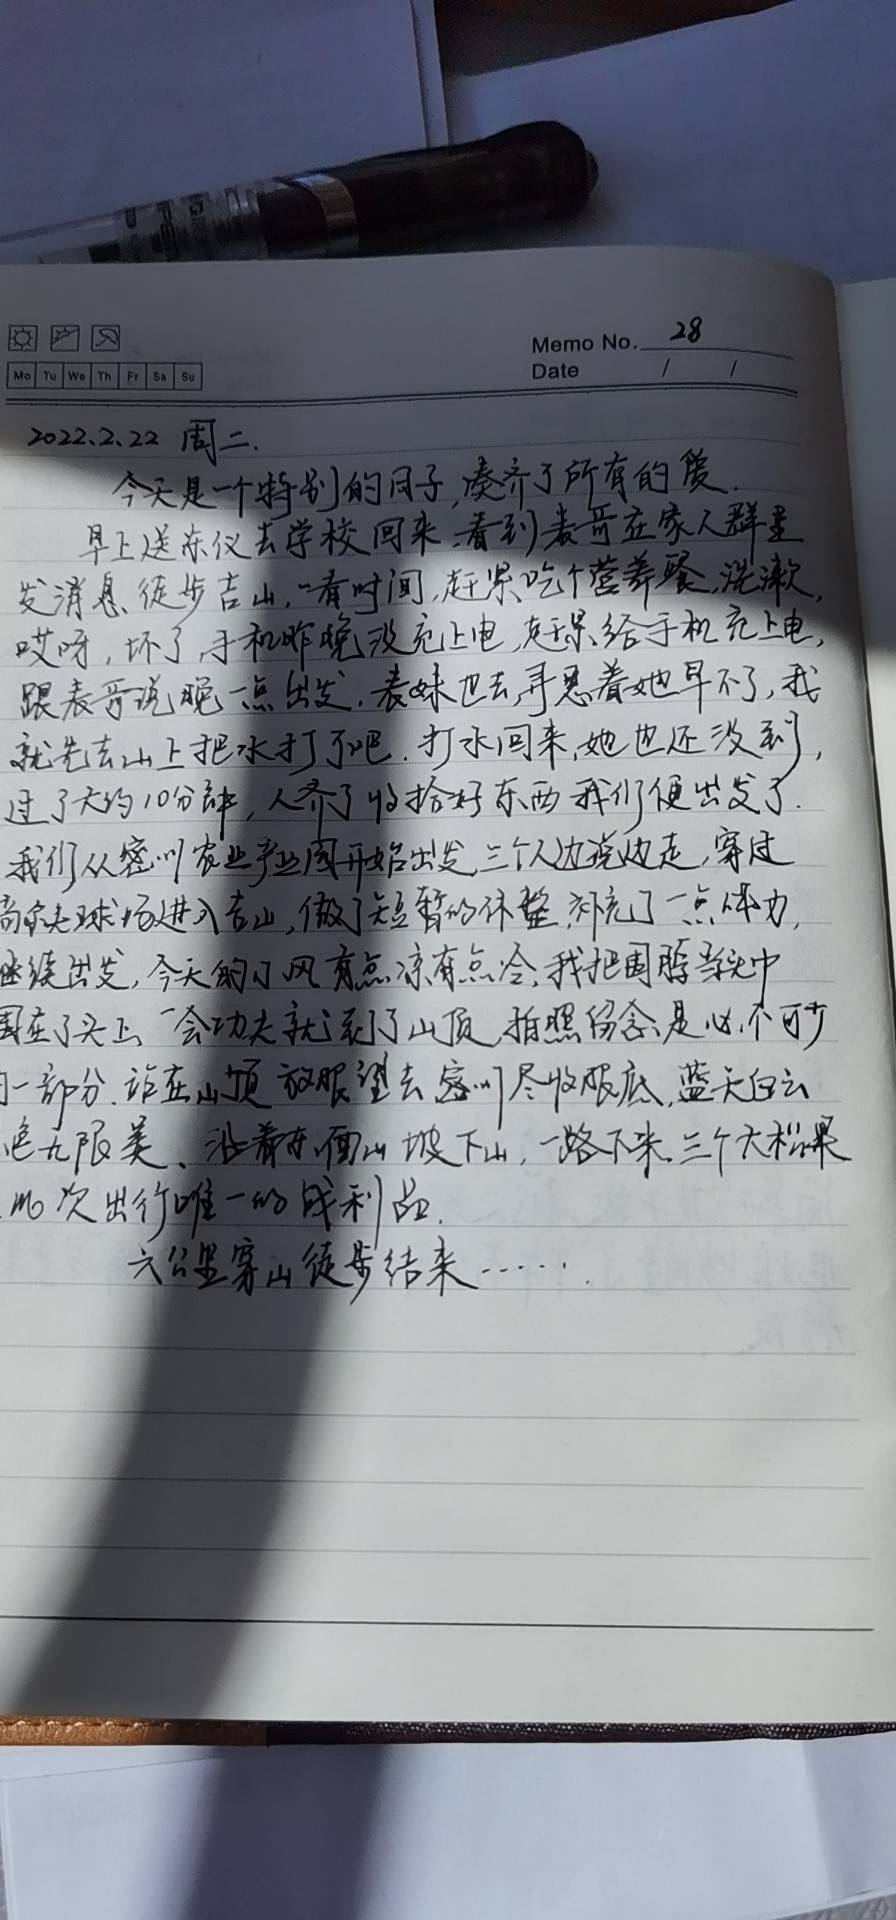 Memo No. 28
Mo Tu We Th Fr Sa Su
Date / /
2022.2.22 周二.
今天是一个特别的日子,凑齐了所有的爱.
早上送东仪去学校回来,看到表哥在家人群里
发消息,徒步吉山,一看时间,赶紧吃个营养餐,洗漱,
哎呀,坏了,手机昨晚没充上电,赶紧给手机充上电,
跟表哥说晚一点出发.表妹也去,寻思着她早不了,我
就先去山上把水打了吧.打水回来,她也还没到,
过了大约10分钟,人齐了收拾好东西我们便出发了.
我们从密川农业产业园开始出发,三个人边说边走,穿过
高尔夫球场进入吉山,做了短暂的休整,补充了一点体力,
继续出发,今天的小风有点凉有点冷,我把围脖当头巾
围在了头上,一会功夫就到了山顶,拍照留念是必不可少
的一部分.站在山顶放眼望去,密川尽收眼底,蓝天白云
色无限美、沿着东面山坡下山,一路下来,三个大松果
此次出行唯一的战利品.
六公里穿山徒步结束......